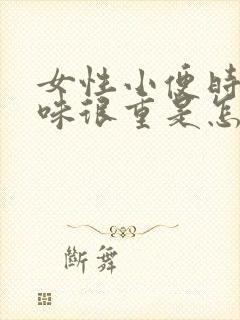 女性小便时
味很重是怎
斷舞